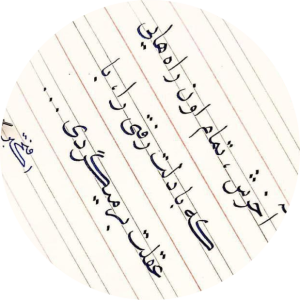 آخرش، تمام اون راه هایی
که با دلت رفتی را، با
عقلت برمیگردی...